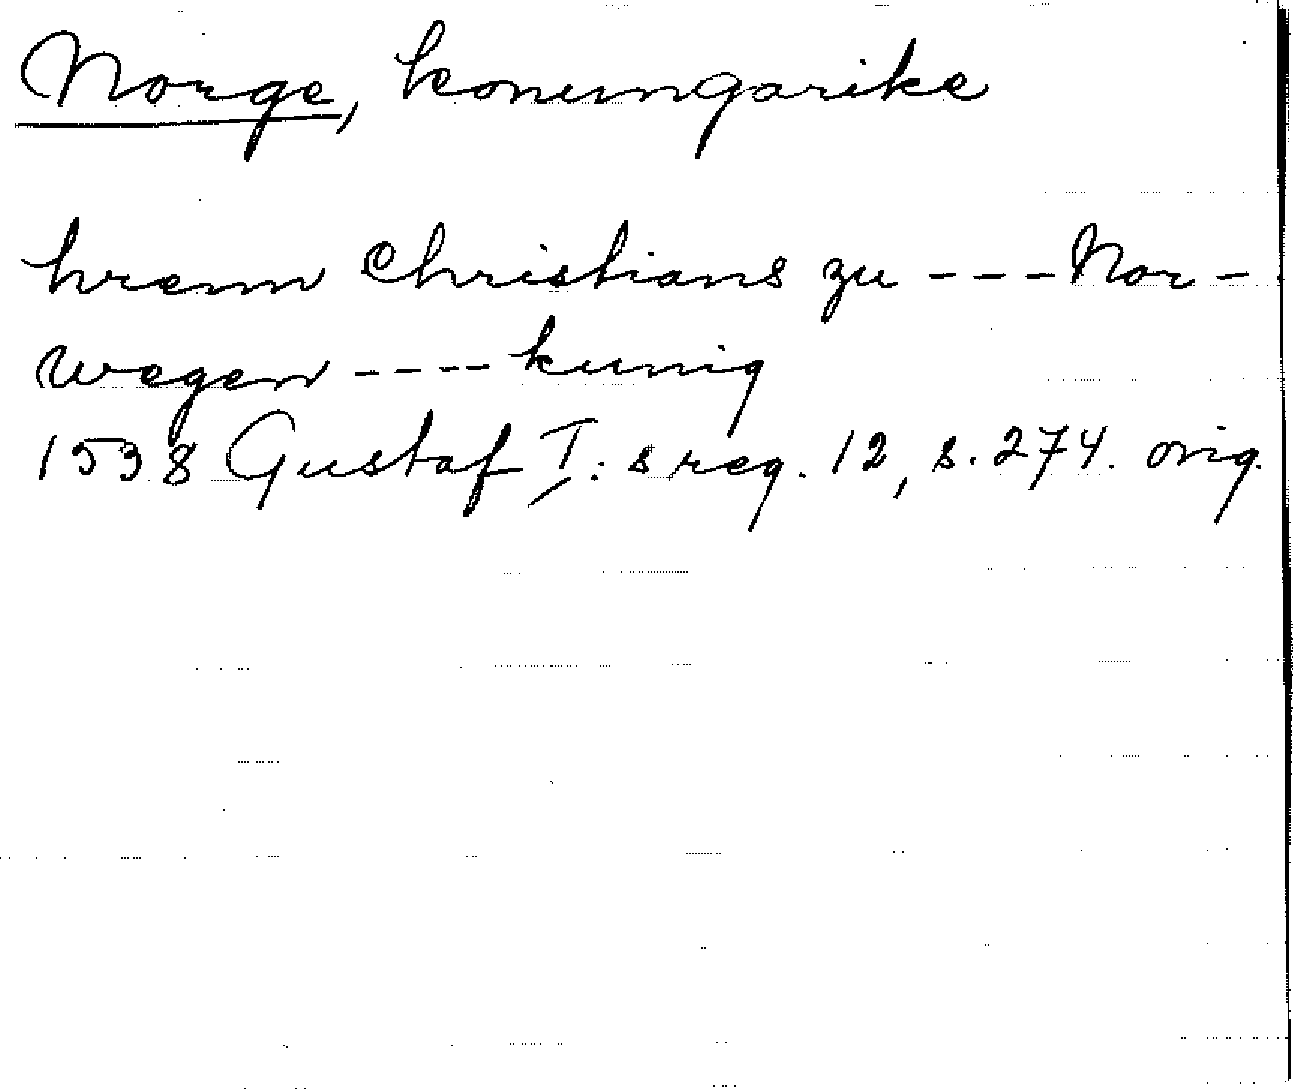 Norge, konungarike
hrenn Christians zu --- Nor-
wegen ---- kunig
1538 Gustaf I:s reg. 12, s. 274. orig.